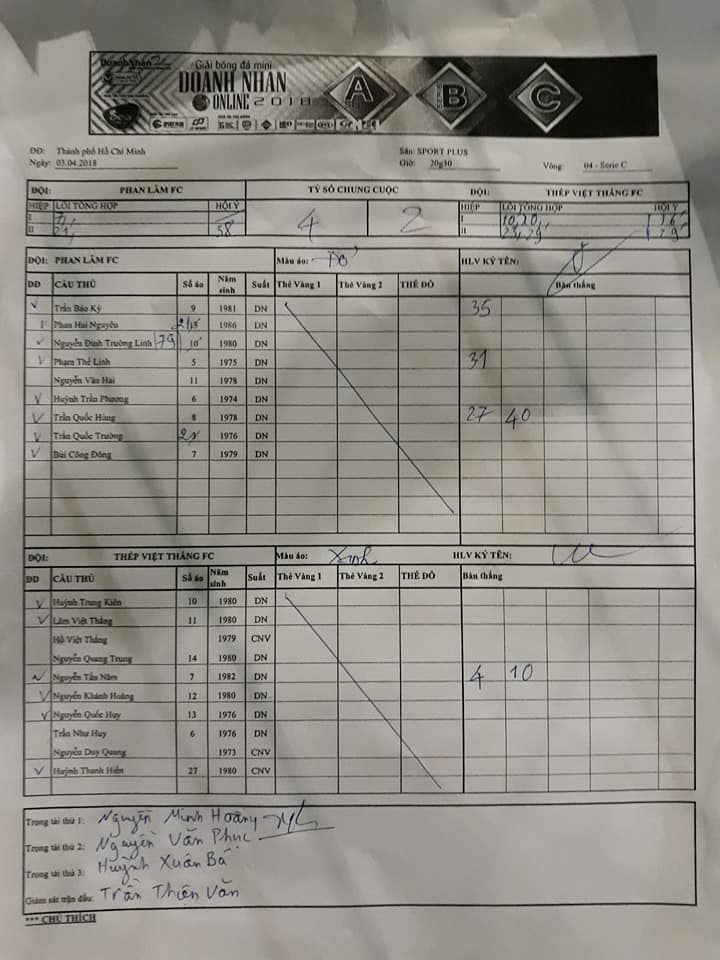 Giải bóng đá mini
DOANH NHÂN
ONLINE 2018
A B C
DĐ: Thành phố Hồ Chí Minh Sân: SPORT PLUS
Ngày: 03.04.2018 Giờ: 20g30 Vòng: 04 - Serie C
ĐỘI: PHAN LÂM FC TỶ SỐ CHUNG CUỘC ĐỘI: THÉP VIỆT THẮNG FC
HIỆP LỖI TỔNG HỢP HỘI Ý 4 2 HIỆP LỖI TỔNG HỢP HỘI Ý
I I 10, 20, 16'
II 21, 38' II 23, 29' 29'
ĐỘI: PHAN LÂM FC Màu áo: Đỏ HLV KÝ TÊN:
DD CẦU THỦ Số áo Năm sinh Suất Thẻ Vàng 1 Thẻ Vàng 2 THẺ ĐỎ Bàn thắng
Trần Bảo Kỳ 9 1981 DN 35
Phan Hải Nguyên 1986 DN
Nguyễn Đình Trường Linh (79) 10 1980 DN
Phạm Thế Linh 5 1975 DN 31
Nguyễn Văn Hải 11 1978 DN
Huỳnh Trần Phương 6 1974 DN
Trần Quốc Hùng 8 1978 DN 27 40
Trần Quốc Trường 1976 DN
Bùi Công Đông 7 1979 DN
ĐỘI: THÉP VIỆT THẮNG FC Màu áo: Xanh HLV KÝ TÊN:
DD CẦU THỦ Số áo Năm sinh Suất Thẻ Vàng 1 Thẻ Vàng 2 THẺ ĐỎ Bàn thắng
Huỳnh Trung Kiên 10 1980 DN
Lâm Việt Thắng 11 1980 DN
Hồ Việt Thắng 1979 CNV
Nguyễn Quang Trung 14 1980 DN
Nguyễn Tấn Năm 7 1982 DN 4 10
Nguyễn Khánh Hoàng 12 1980 DN
Nguyễn Quốc Huy 13 1976 DN
Trần Như Huy 6 1976 DN
Nguyễn Duy Quang 1973 CNV
Huỳnh Thanh Hiền 27 1980 CNV
Trọng tài thứ 1: Nguyễn Minh Hoàng
Trọng tài thứ 2: Nguyễn Văn Phục
Trọng tài thứ 3: Huỳnh Xuân Bá
Giám sát trận đấu: Trần Thiện Văn
*** CHÚ THÍCH